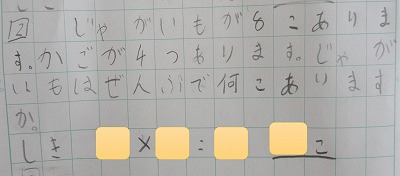 2 じゃがいもが8こありま
す。かごが4つあります。じゃが
いもはぜんぶで何こあります
か。
しき × = こ